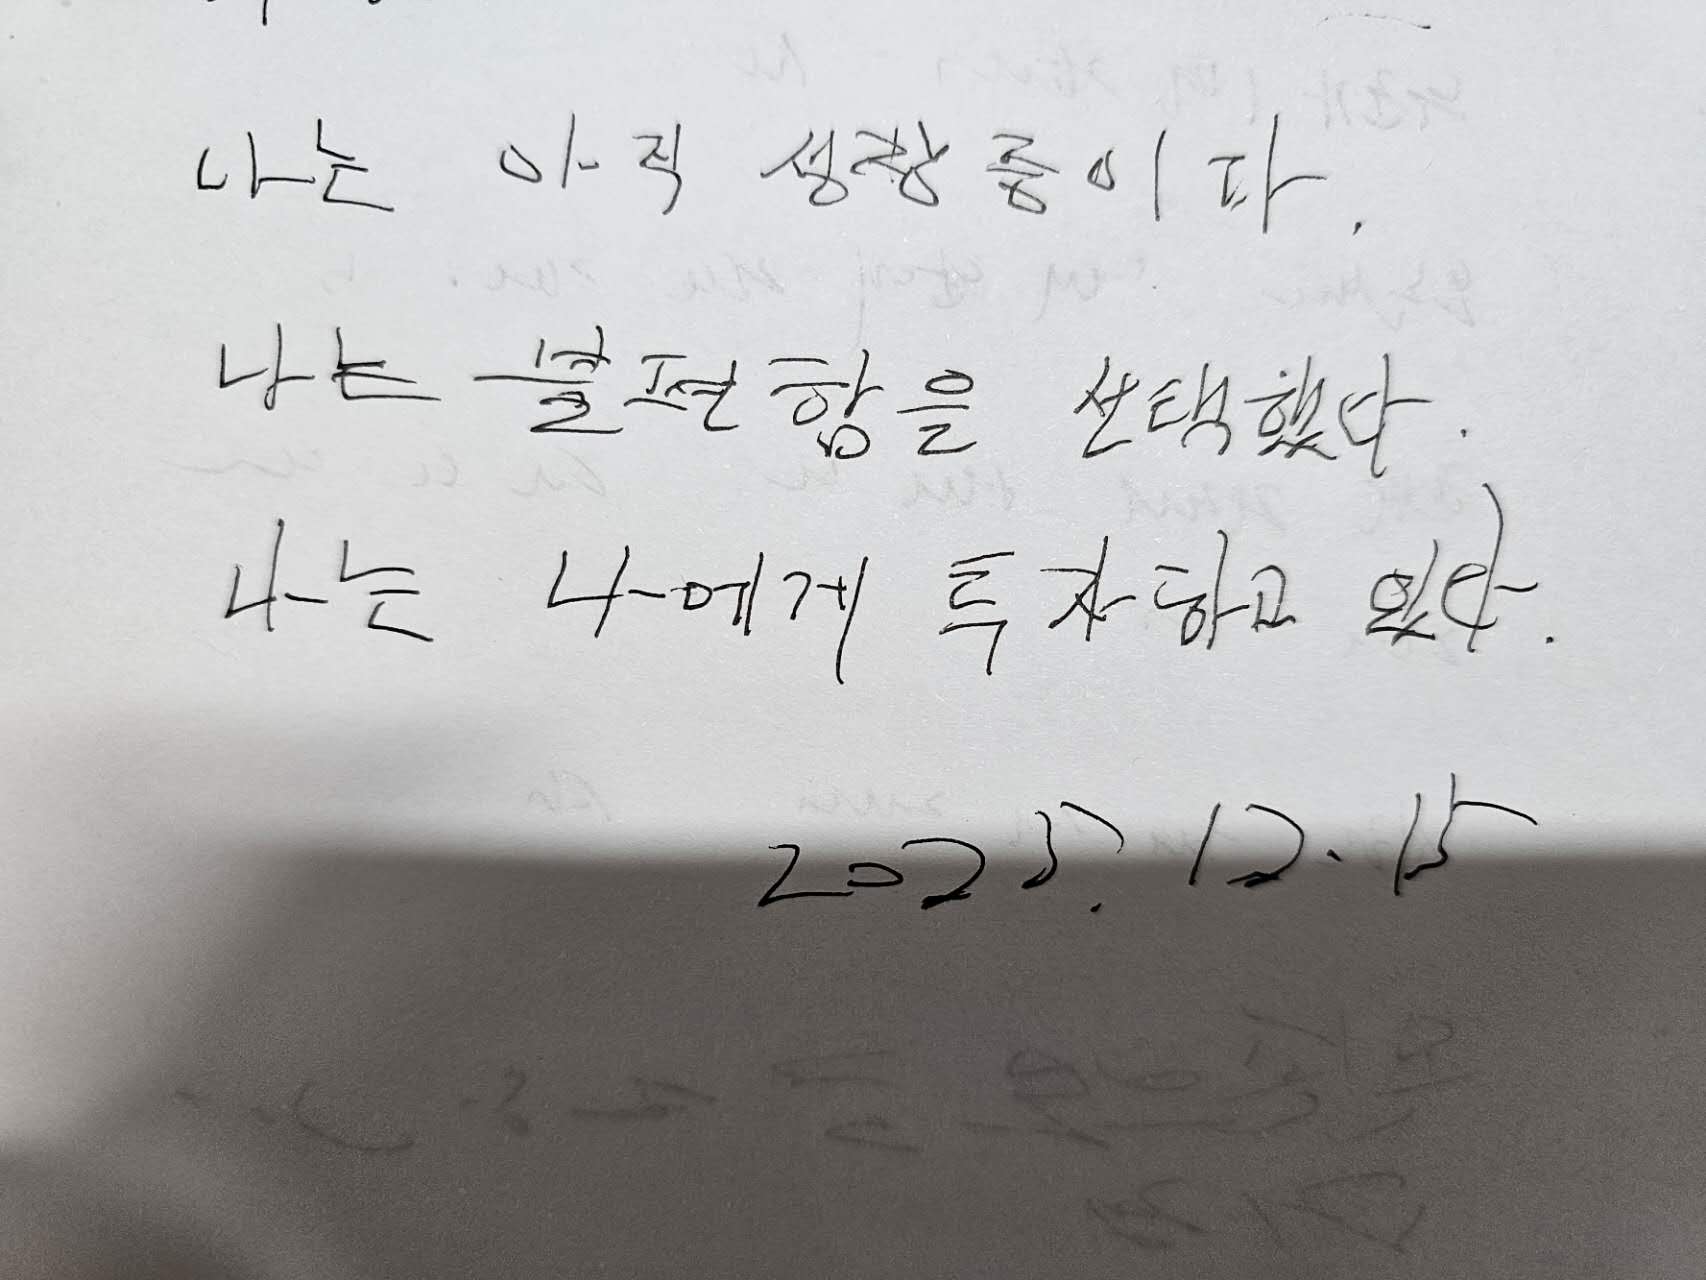 나는 아직 성장중이다.
나는 불편함을 선택했다.
나는 나에게 투자하고 있다.
2025. 12. 15